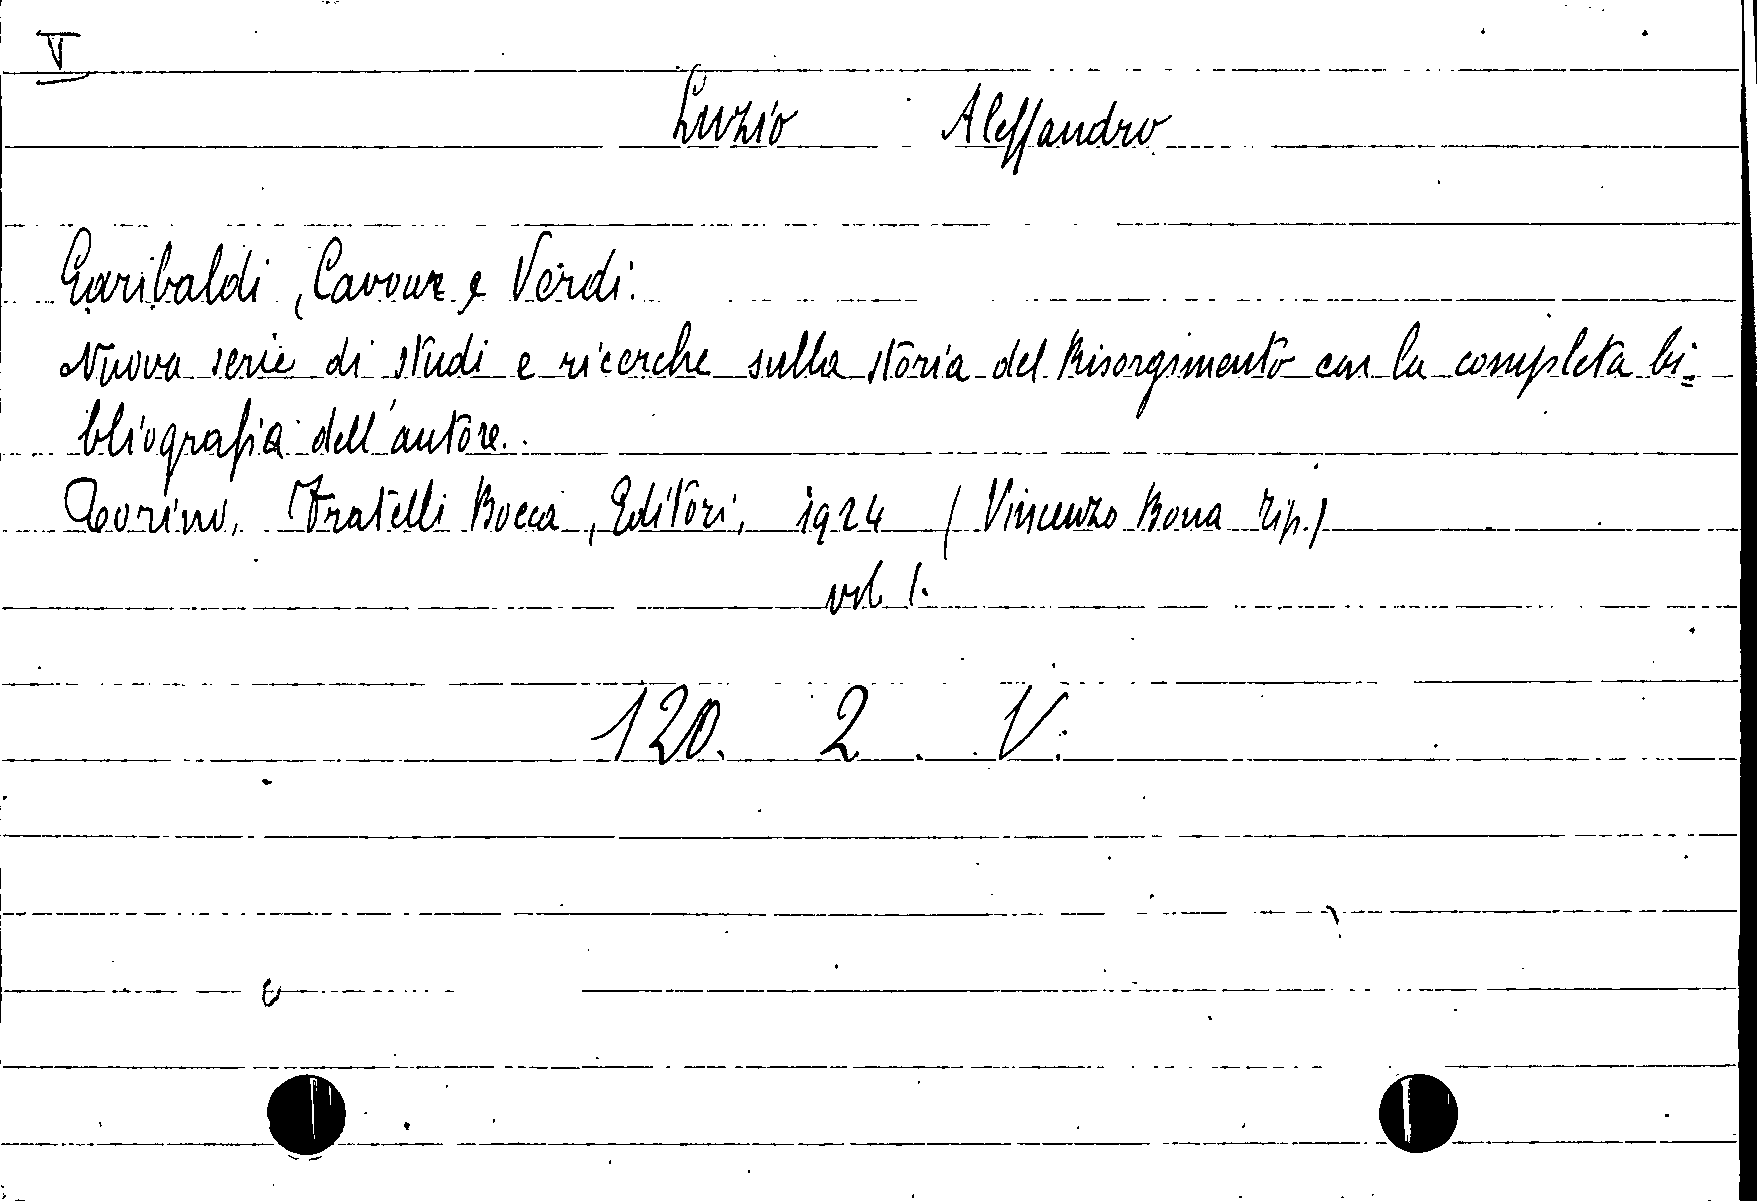 V
Luzio Alessandro
Garibaldi, Cavour e Verdi.
Nuova serie di studi e ricerche sulla storia del Risorgimento con la completa bi=
bliografia dell'autore.
Torino, Fratelli Bocca, Editori, 1924 (Vincenzo Bona tip.)
vol. 1.
120. 2. V.